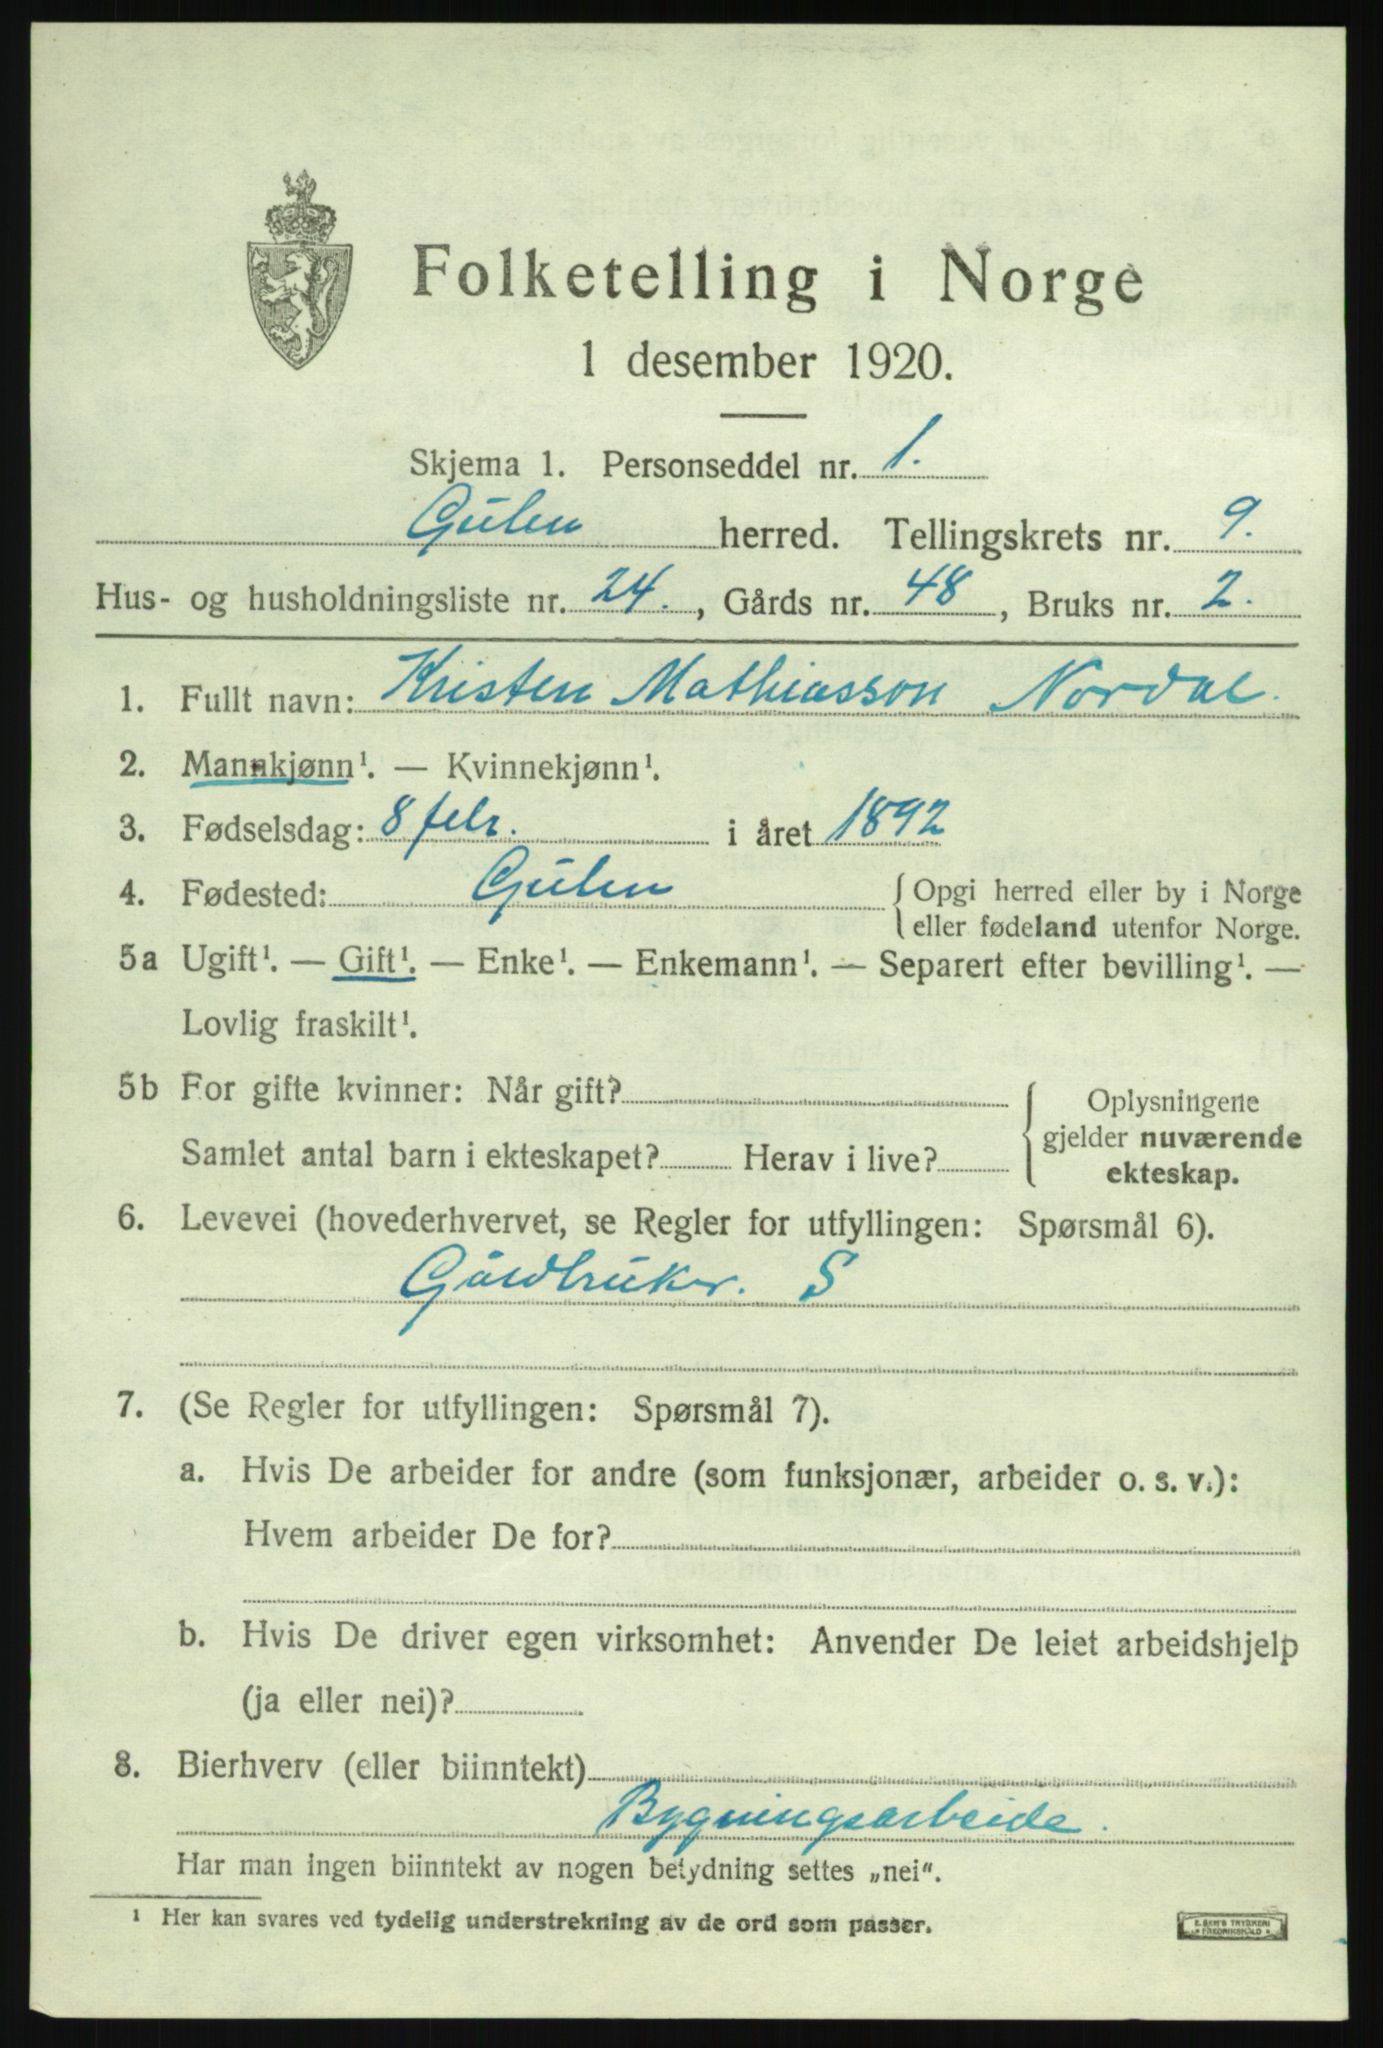 Folketelling i Norge
1 desember 1920.
Skjema 1. Personseddel nr. 1.
Gulen herred. Tellingskrets nr. 9.
Hus- og husholdningsliste nr. 24., Gårds nr. 48, Bruks nr. 2.
1. Fullt navn: Kristen Mathiasson Nordal.
2. Mannkjønn¹. — Kvinnekjønn¹.
3. Fødselsdag: 8 febr. i året 1892
4. Fødested: Gulen { Opgi herred eller by i Norge
eller fødeland utenfor Norge.
5a Ugift¹. — Gift¹. — Enke¹. — Enkemann¹. — Separert efter bevilling¹. —
Lovlig fraskilt¹.
5b For gifte kvinner: Når gift? { Oplysningene
gjelder nuværende
Samlet antal barn i ekteskapet? Herav i live?
ekteskap.
6. Levevei (hovederhvervet, se Regler for utfyllingen: Spørsmål 6).
Gårdbruker. S
7. (Se Regler for utfyllingen: Spørsmål 7).
a. Hvis De arbeider for andre (som funksjonær, arbeider o. s. v.):
Hvem arbeider De for?
b. Hvis De driver egen virksomhet: Anvender De leiet arbeidshjelp
(ja eller nei)?
8. Bierhverv (eller biinntekt)
Bygningsarbeide.
Har man ingen biinntekt av nogen betydning settes „nei".
¹ Her kan svares ved tydelig understrekning av de ord som passer.
E. SEM'S TRYKKERI
FREDRIKSHALD